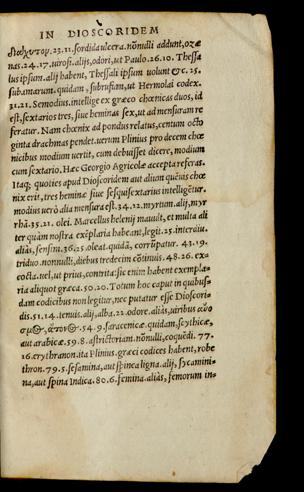 IN DIOSCORIDEM
διυχυτον. 23. 11. sordida ulcera. nōnulli addunt, ozæ
nas. 24. 17. uirosi. alijs, odori, ut Paulo. 26. 10. Thessa
lus ipsum. alij habent, Thessali ipsum uolunt &c. 25.
subamarum. quidam, subrufum, ut Hermolai codex.
31. 21. Semodius. intellige ex græco chœnicas duos, id
est, sextarios tres, siue heminas sex, ut ad mensuram re
feratur. Nam chœnix ad pondus relatus, centum octo
ginta drachmas pendet. uerum Plinius pro decem chœ
nicibus modium uertit, cum debuisset dicere, modium
cum sextario. Hæc Georgio Agricolæ accepta referas.
Itaq; quoties apud Dioscoridem aut alium quēuis chœ
nix erit, tres heminæ siue sesquisextarius intelligētur.
modius uerò alia mensura est. 34. 12. myrtum. alij, myr
rhā. 35. 21. olei. Marcellus helenij mauult, et multa ali
ter quàm nostra exēplaria habeant, legit. 25. interaiu.
aliàs, sensim. 36. 25. oleat. quidā, corrūpatur. 43. 19.
triduo. nonnulli, diebus tredecim cōtinuis. 48. 26. ex-
cocta. uel, ut prius, contrita: sic enim habent exempla-
ria aliquot græca. 50. 20. Totum hoc caput in quibus-
dam codicibus non legitur, nec putatur esse Dioscori-
dis. 51. 14. tenuis. alij, alba. 22. odore. aliàs, uiribus
54. 9. saracenicæ. quidam, scythicæ,
aut arabicæ. 59. 8. astrictoriam. nōnulli, coquēdi. 77.
16. erythranon. ita Plinius. græci codices habent, robe
thron. 79. 5. sesamina, aut spinea ligna. alij, sycamini-
na, aut spina Indica. 80. 6. femina. aliàs, femorum in-